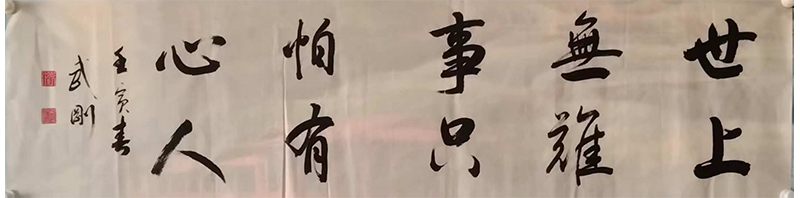 世上
無難
事只
怕有
心人
壬寅春
武剛